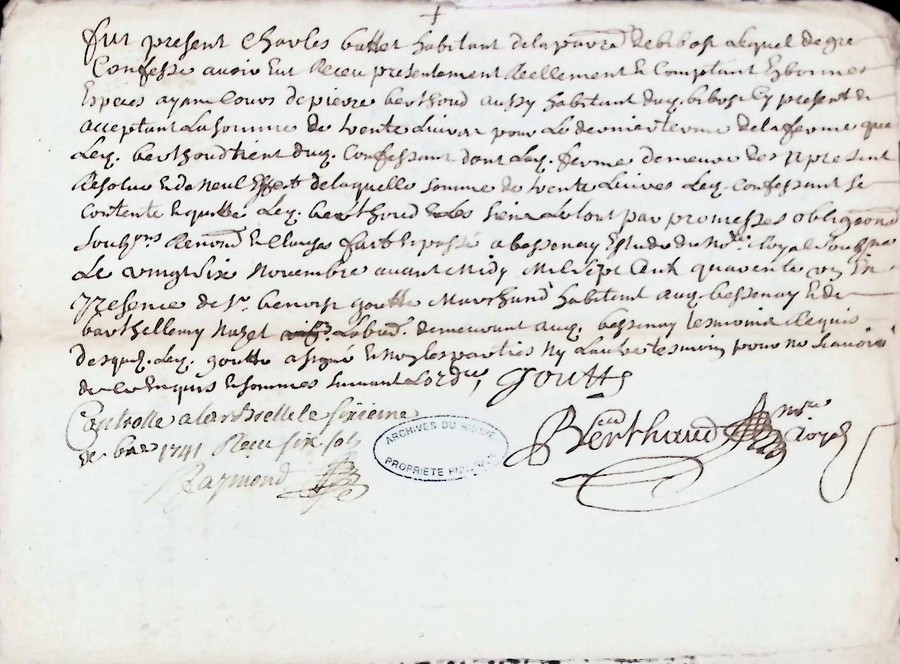 +
fut present Charles battet habitant dela parre. de bibost Lequel de gre
Confesse avoir Eut Receu presentement Reellement & Comptant En bonnes
Especes ayans Cours de pierre berthoud aussy habitant dud. bibost Cy present &
acceptant La somme de trente Livres pour Le dernier terme de la ferme que
Led. berthoud tient dud. Confessant dont Lad. ferme demeure des a present
Resolue & de Neul Effect de laquelle somme de trente Livres Led. Confessant se
Contente & quitte Led. berthoud & Les siens Le tout par promesses obligeons
soubms. Renons. & Clauses fait & passé a bessenay Estude du Nore. Royal soussigne
Le vingt six Novembre avant Midy Mil sept Cent quarente un En
presence de sr. benoist goutte Marchand habitant aud. bessenay & de
barthellemy Nazet Labour. demeurant aud. bessenay tesmoins Requis
desquels Led. goutte a signé & Non les parties Ny Lautre tesmoin pour ne scavoir
de ce Enquis & sommes suivant Lord.
goutte
Controlle a larbrelle le sixieme
xbre 1741 Receu six sols
Raymond
Berthaud nore Royal
ARCHIVES DU RHONE
PROPRIETE PUBLIQUE